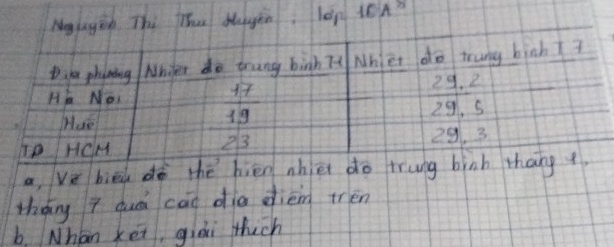 Nguyễn Thị Thu Huyền, lớp 10A⁸
Địa phương Nhiệt độ trung bình T1 Nhiệt độ trung bình T7
Hà Nội 17 29,2
Huế 19 29,5
TP HCM 23 29,3
a, Vẽ biểu đồ thể hiện nhiệt độ trung bình tháng 1,
tháng 7 của các địa điểm trên
b, Nhận xét, giải thích